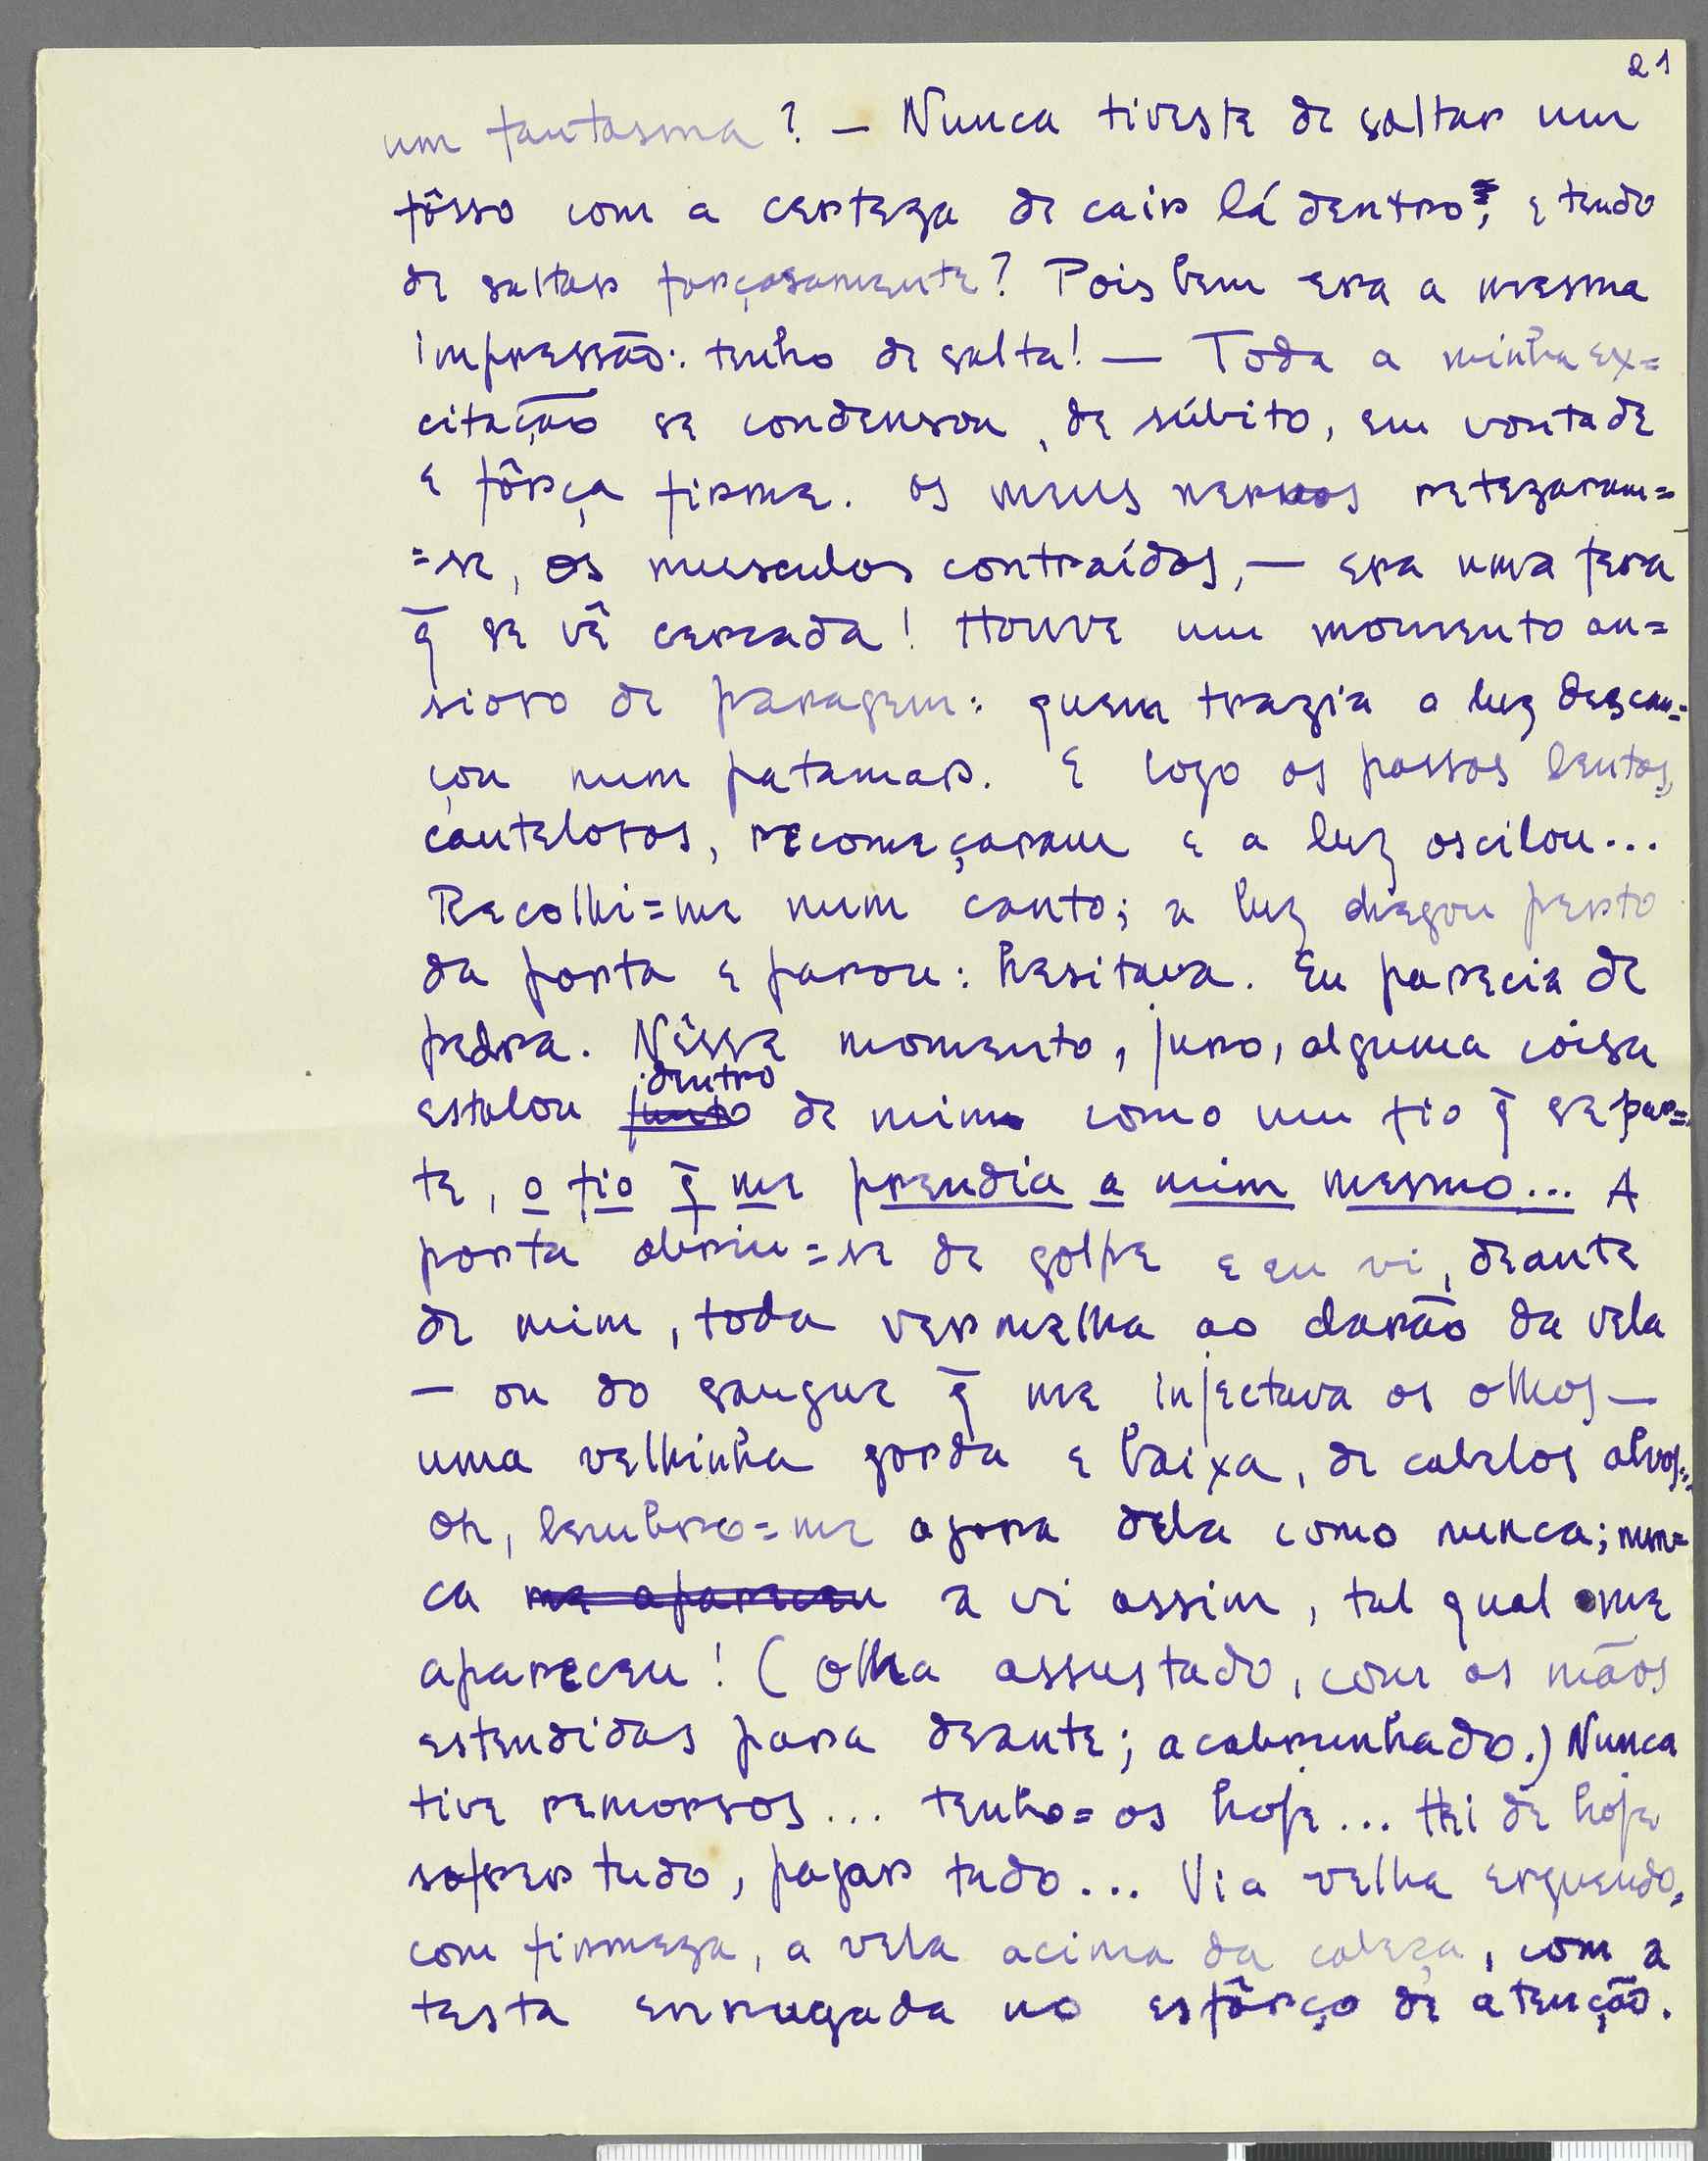 21
um fantasma? — Nunca tiveste de saltar um
fôsso com a certeza de cair lá dentro, e tendo
de saltar forçosamente? Pois bem era a mesma
impressão: tenho de salta! — Toda a minha ex=
citação se condensou, de súbito, em vontade
e fôrça firme. os meus nervos retezaram=
=se, os musculos contraídos, — era uma fera
q̄ se vê cercada! Houve um momento an=
sioso de paragem: quem trazia a luz descan=
çou num patamar. E logo os passos lentos,
cautelosos, recomeçaram e a luz oscilou...
Recolhi=me num canto; a luz chegou perto
da porta e parou: hesitava. Eu parecia de
pedra. Nêsse momento, juro, alguma coisa
dentro
estalou junto de mim como um fio q̄ se par=
te, o fio q̄ me prendia a mim mesmo... A
porta abriu=se de golpe e eu vi, deante
de mim, toda vermelha ao clarão da vela
— ou do sangue q̄ me injectava os olhos —
uma velhinha gorda e baixa, de cabelos alvos...
Oh, lembro=me agora dela como nunca; nun=
ca me apareceu a vi assim, tal qual me
apareceu! (Olha assustado, com as mãos
estendidas para deante; acabrunhado.) Nunca
tive remorsos... tenho=os hoje... Hei de hoje
sofrer tudo, pagar tudo... Vi a velha erguendo,
com firmeza, a vela acima da cabeça, com a
testa enrugada no esfôrço de atenção.